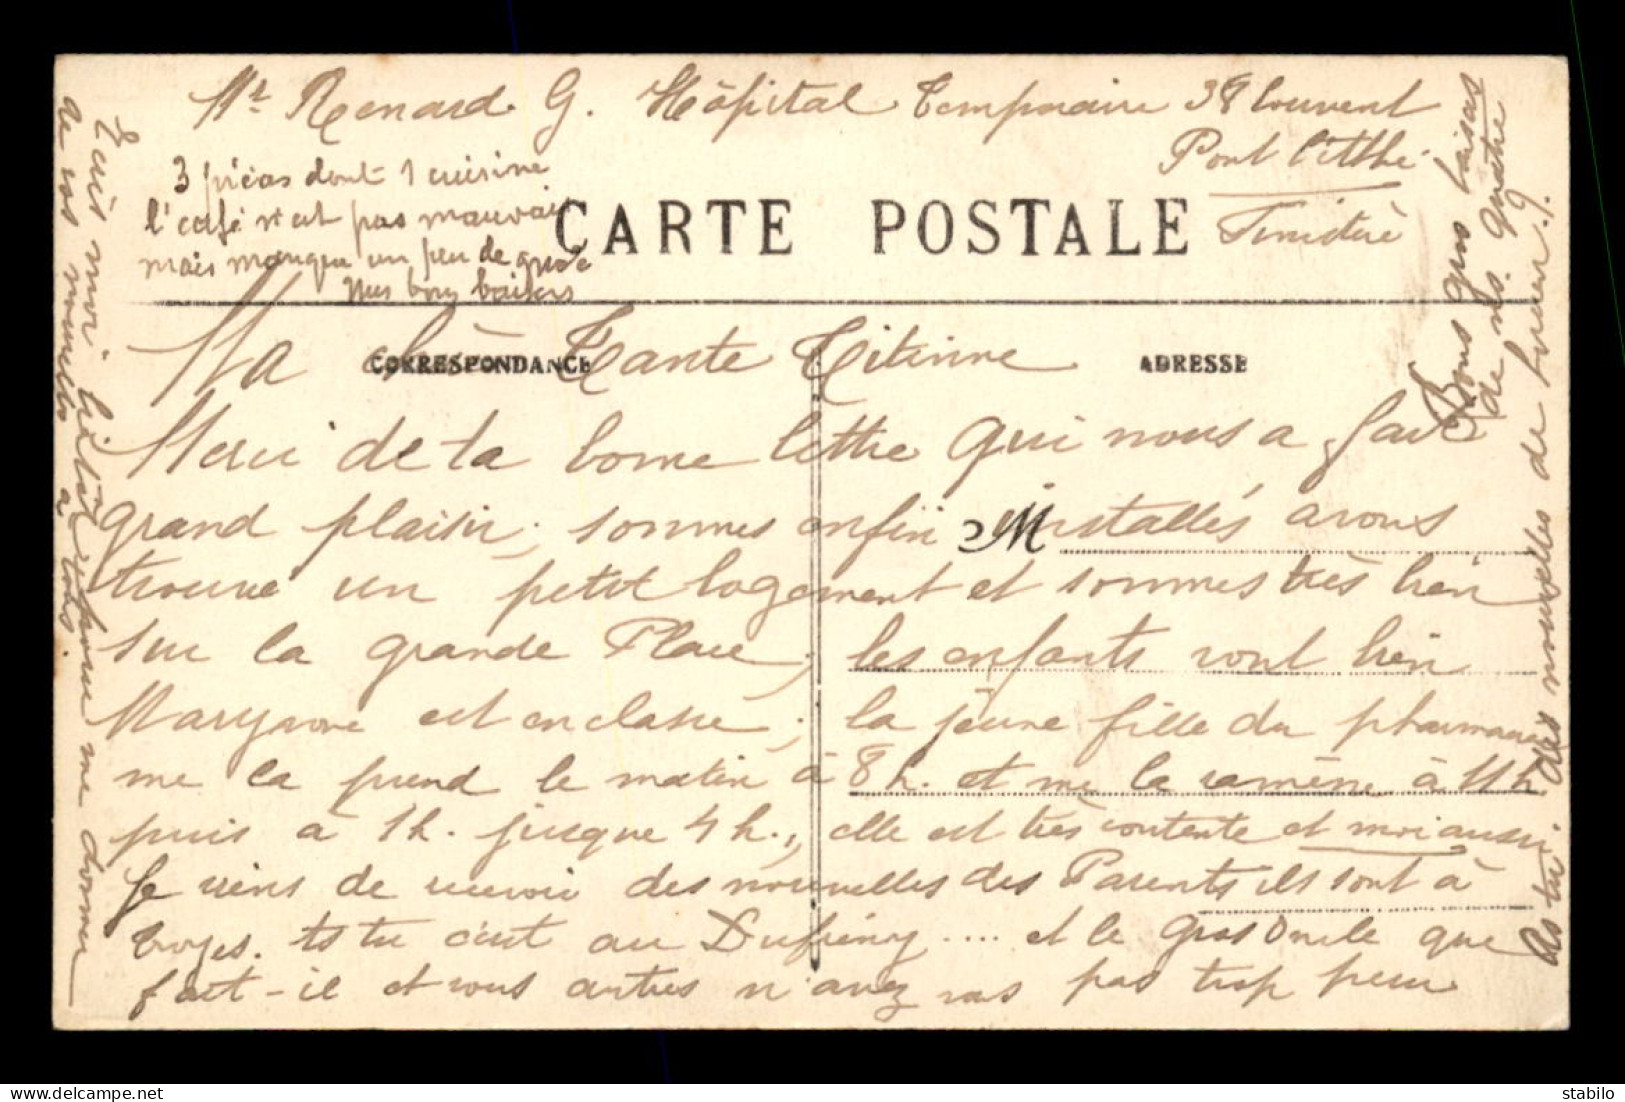 Mr Renard G. Hôpital Temporaire 38 Couvent
Pont l'Abbé
Finistère
3 pièces dont 1 cuisine
l'café n'est pas mauvais
mais manque un peu de
gros bons baisers
CARTE POSTALE
CORRESPONDANCE
ADRESSE
Ma chère Tante Titinne
Merci de ta bonne lettre qui nous a fait
grand plaisir, sommes enfin installés avons
trouvé un petit logement et sommes très bien
sur la grande Place, les enfants vont bien
Maryvone est en classe, la jeune fille du pharmacien
me la prend le matin à 8 h. et me la ramène à 11 h
puis à 1 h. jusque 4 h., elle est très contente et moi aussi
Je viens de recevoir des nouvelles des Parents ils sont à
Troyes. et le gros Oncle que
fait-il et vous autres n'avez vous pas trop peur
Ecris moi bientôt me donner
de vos nouvelles à tous
Bons gros baisers
de ns. quatre
As tu des nouvelles de Lucien ?
stabilo